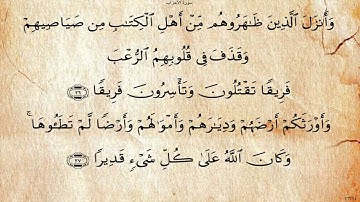 سورة الأحزاب
وَأَنزَلَ ٱلَّذِينَ ظَٰهَرُوهُم مِّنْ أَهْلِ ٱلْكِتَٰبِ مِن صَيَاصِيهِمْ
وَقَذَفَ فِى قُلُوبِهِمُ ٱلرُّعْبَ
فَرِيقًا تَقْتُلُونَ وَتَأْسِرُونَ فَرِيقًا ٢٦
وَأَوْرَثَكُمْ أَرْضَهُمْ وَدِيَٰرَهُمْ وَأَمْوَٰلَهُمْ وَأَرْضًا لَّمْ تَطَـُٔوهَا ۚ
وَكَانَ ٱللَّهُ عَلَىٰ كُلِّ شَىْءٍ قَدِيرًا ٢٧